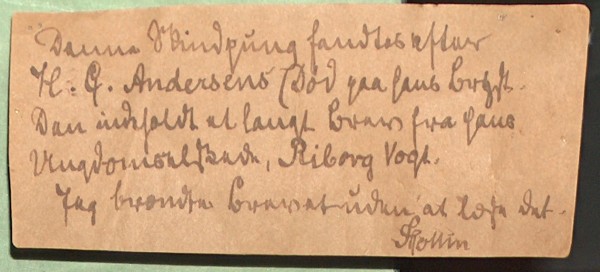 Denne Skindpung fandtes efter
H. C. Andersens Død paa hans Bryst.
Den indeholdt et langt Brev fra hans
Ungdomselskede, Riborg Vogt.
Jeg brændte Brevet uden at læse det.
JCollin